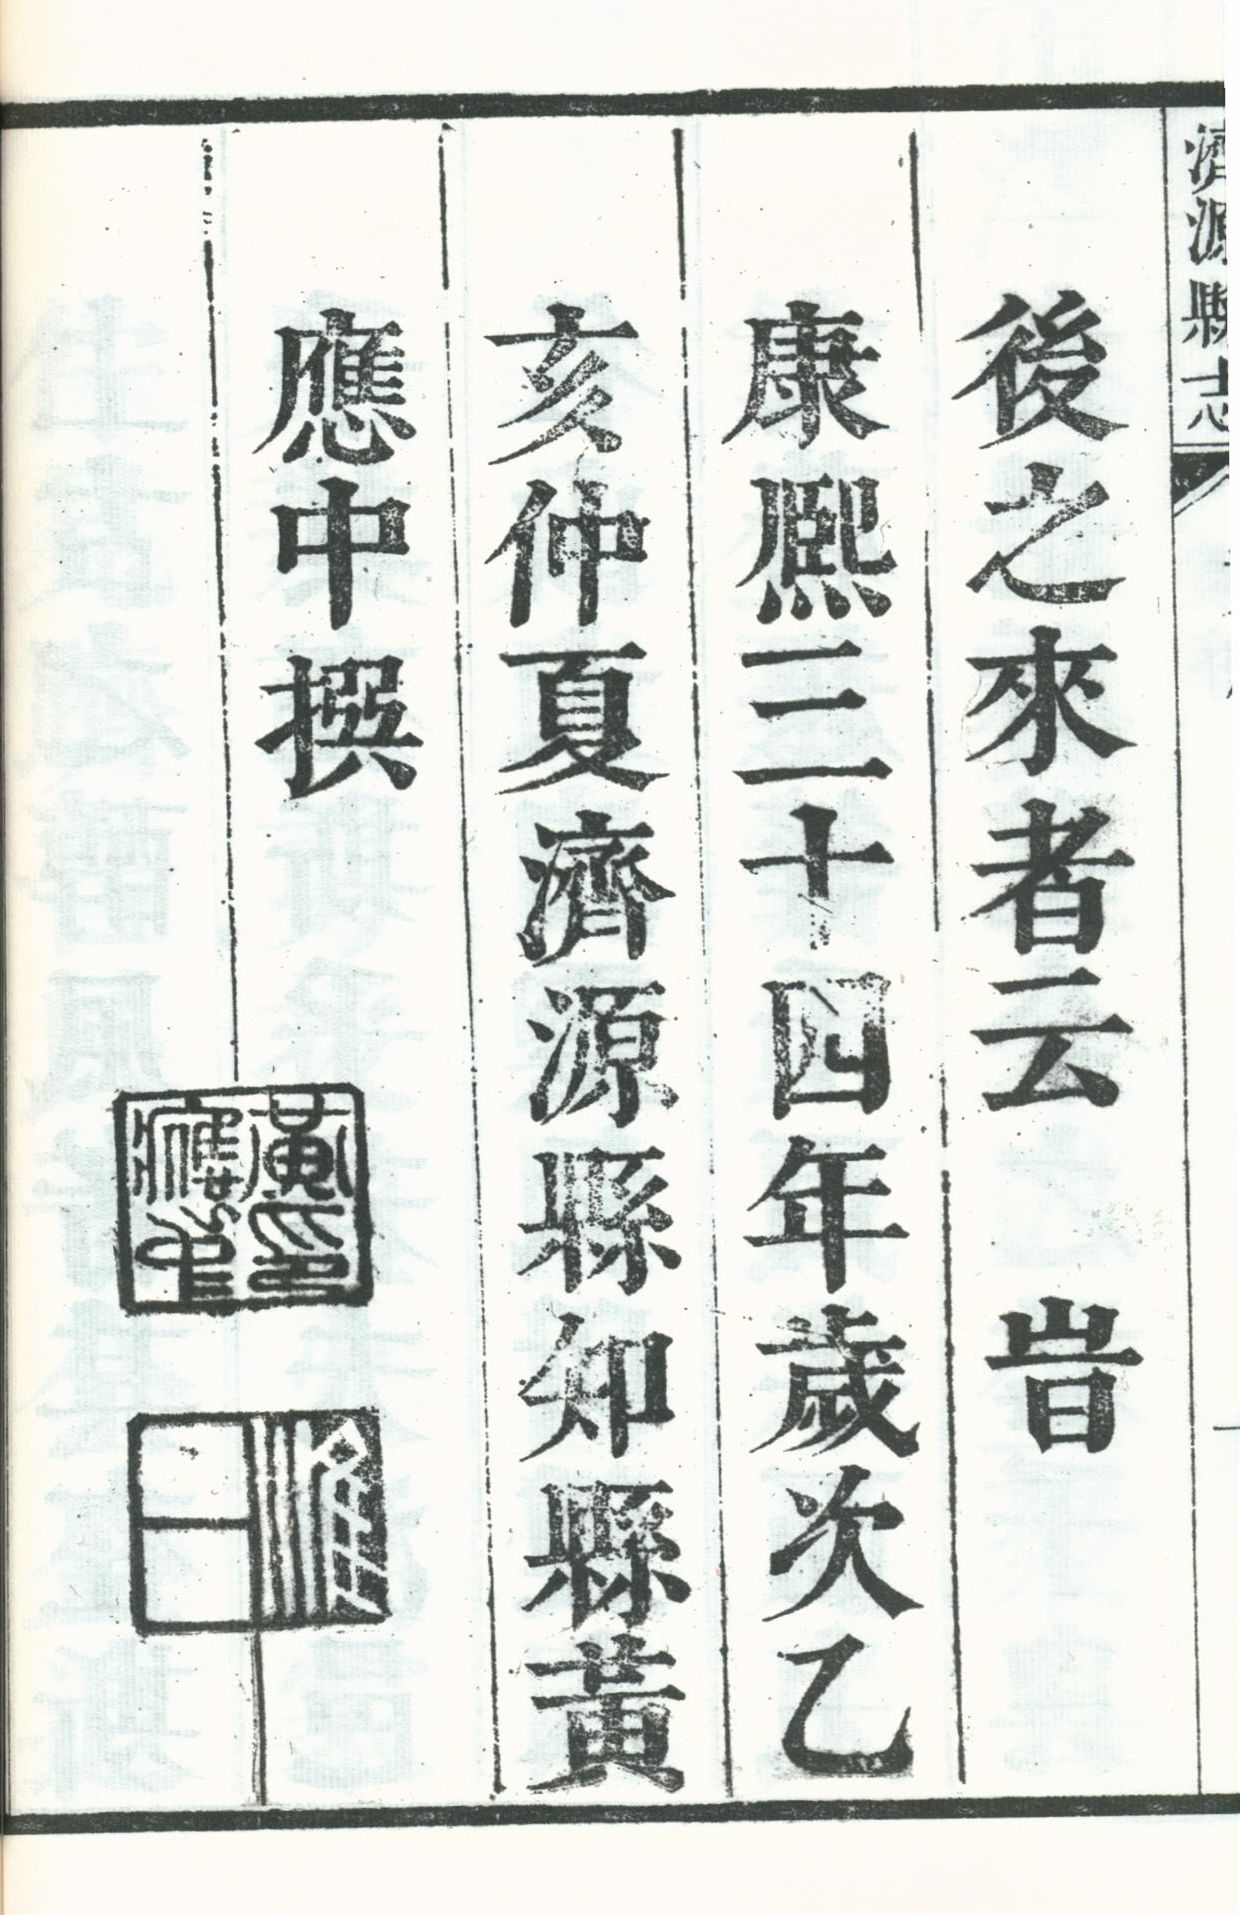 濟源縣志
後之來者云　旹
康熙三十四年歲次乙
亥仲夏濟源縣知縣黃
應中撰
黃印
應中